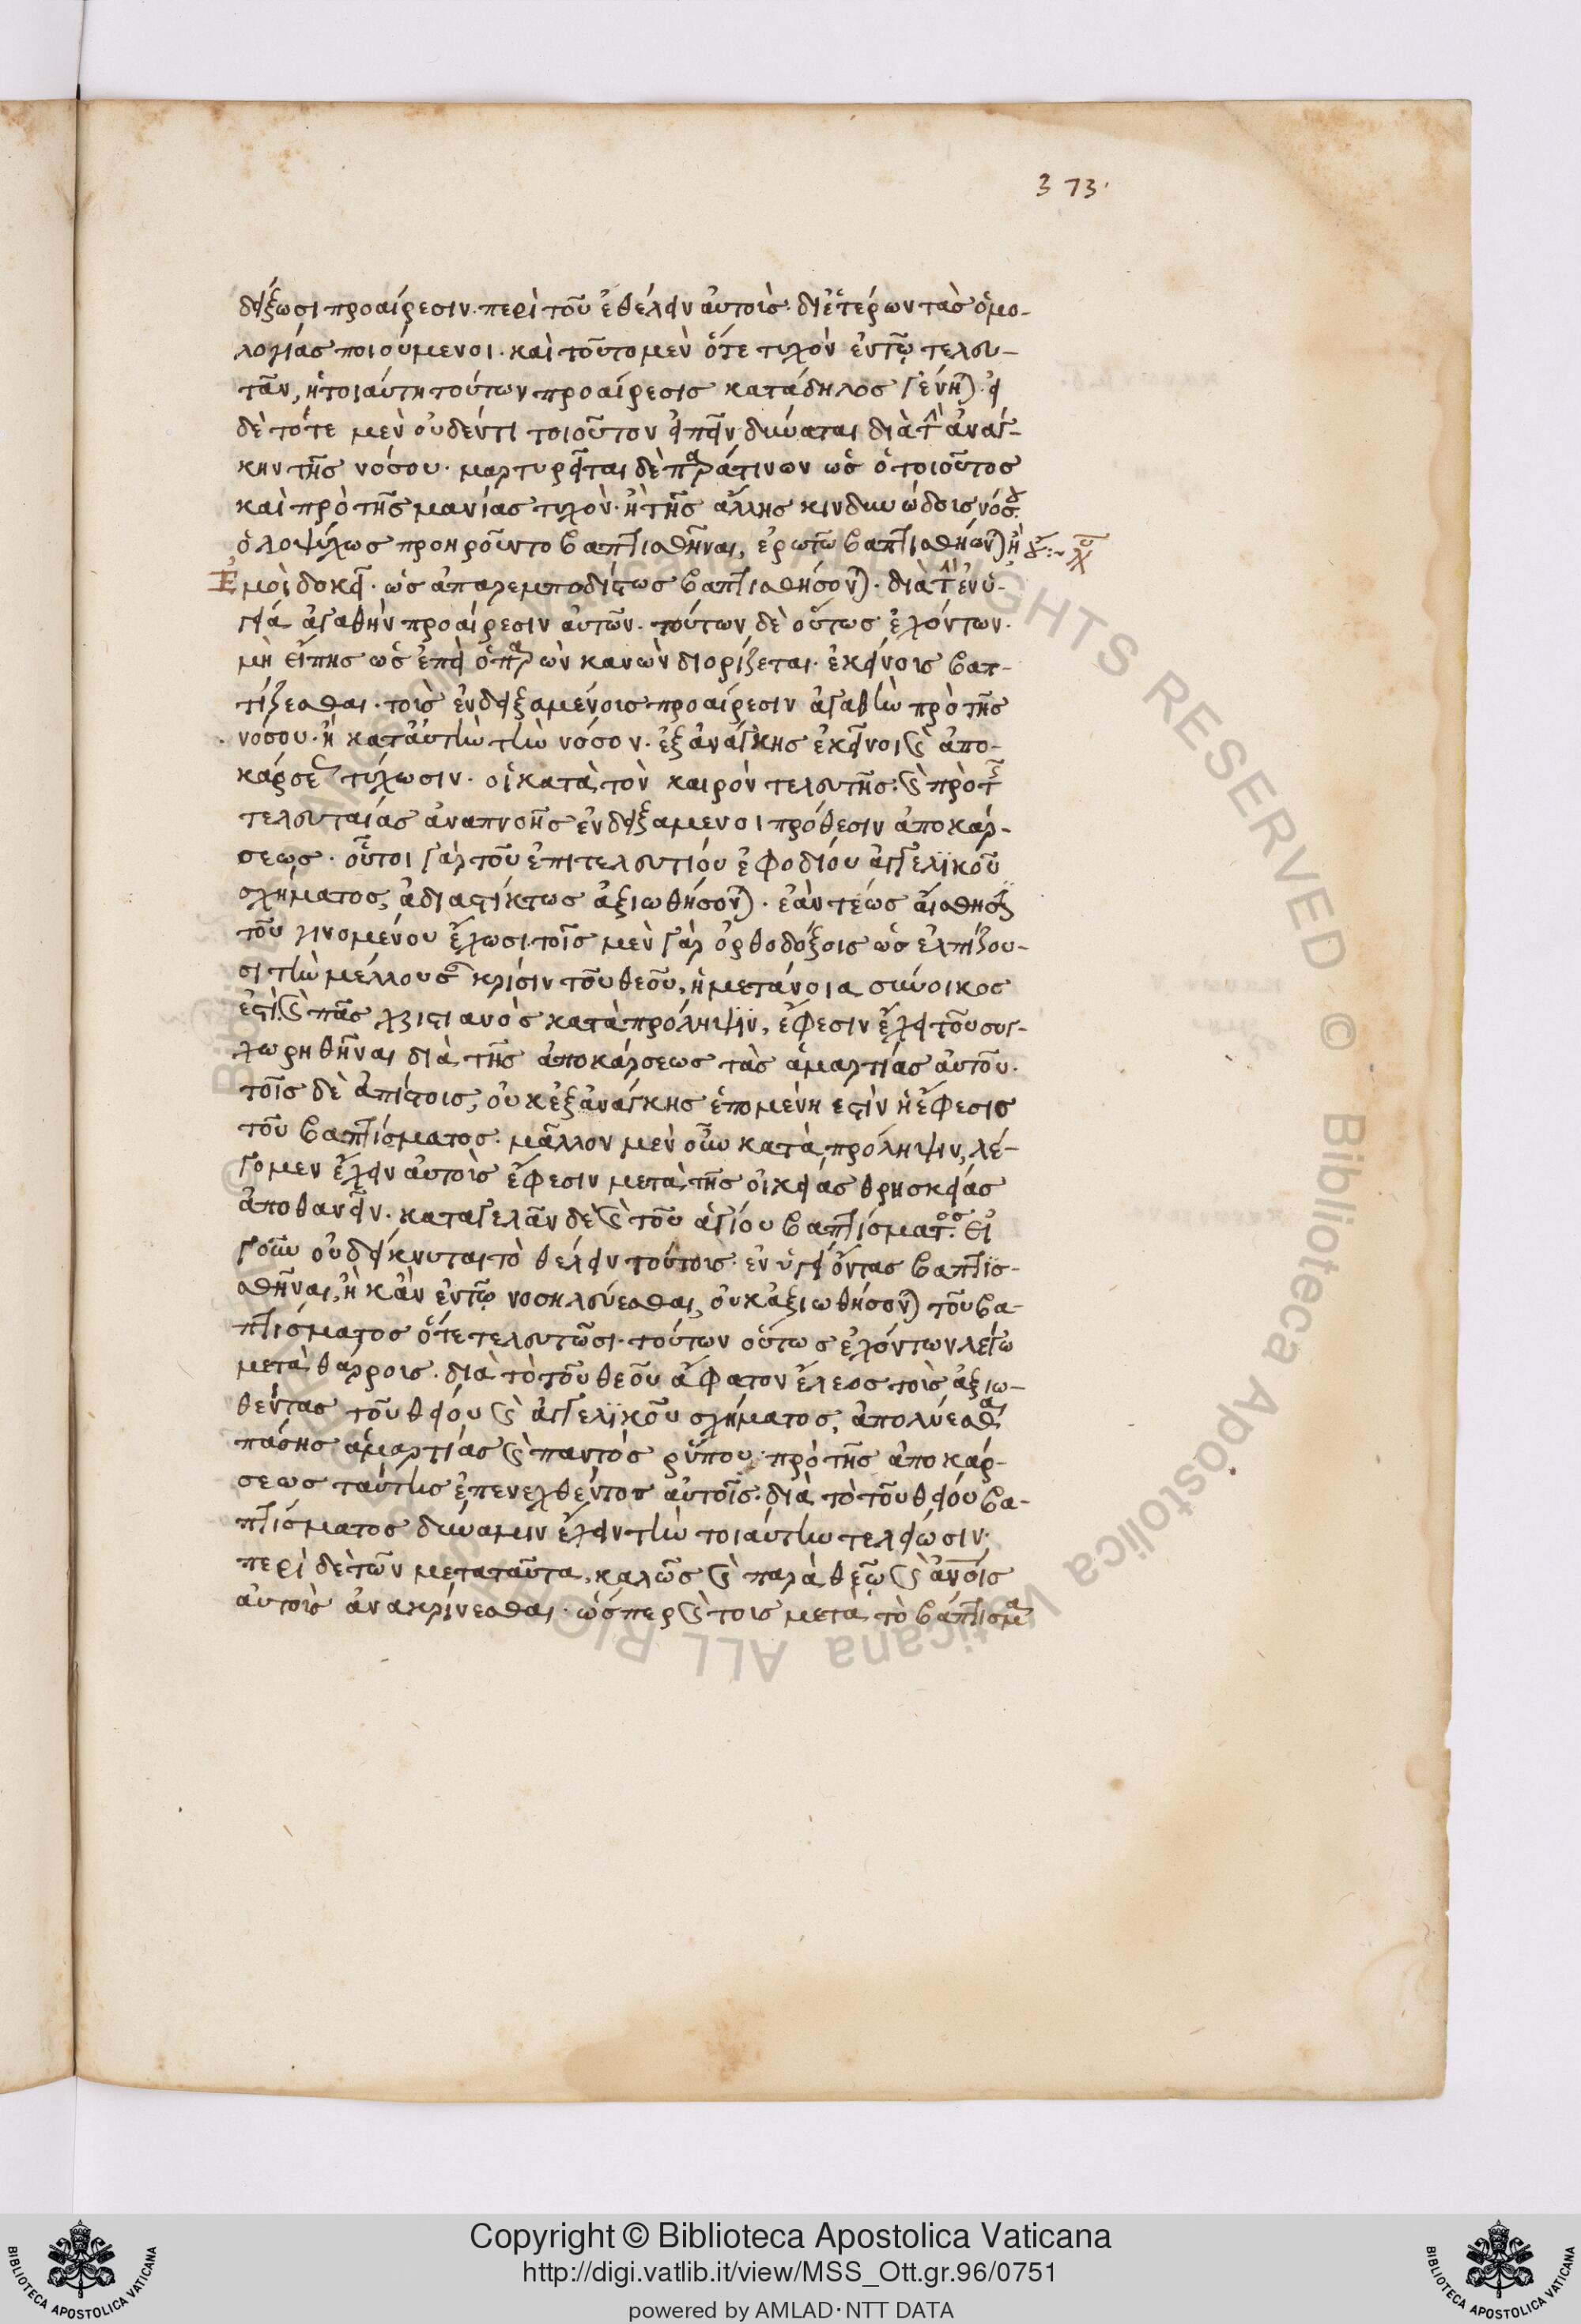 373.
δείξωσι προαίρεσιν. περὶ τοῦ ἐθέλειν αὐτοῖς. δι ἑτέρων τὰς ὁμο-
λογίας ποιούμενοι. καὶ τοῦτο μὲν ὅτε τυχὸν ἐν τῷ τελευ-
τᾶν, ἡ τοιαύτη τούτων προαίρεσις κατάδηλος γένηται. εἰ
δὲ τότε μὲν οὐδέν τι τοιοῦτον εἰπεῖν δύναται διὰ τὴν ἀνάγ-
κην τῆς νόσου. μαρτυρεῖται δὲ παρά τινων ὡς ὁ τοιοῦτος
καὶ πρὸ τῆς μανίας τυχὸν. ἢ τῆς ἄλλης κινδυνώδους νόσου.
ὁλοψύχως προηροῦντο βαπτισθῆναι, ἐρωτῶ βαπτισθήσονται ἢ οὔ:~
Ἐμοὶ δοκεῖ. ὡς ἀπαρεμποδίστως βαπτισθήσονται. διὰ τὴν ἐν ὑ-
γείᾳ ἀγαθὴν προαίρεσιν αὐτῶν. τούτων δὲ οὕτως ἐχόντων.
μὴ εἴπῃς ὡς ἐπεὶ ὁ παρὼν κανὼν διορίζεται. ἐκείνοις βαπ-
τίζεσθαι. τοῖς ἐνδειξαμένοις προαίρεσιν ἀγαθὴν πρὸ τῆς
νόσου. ἢ κατ αὐτὴν τὴν νόσον. ἐξ ἀνάγκης ἐκεῖνοι καὶ ἀπο-
κάρσεως τύχωσιν. οἱ κατὰ τὸν καιρὸν τελευτῆς. καὶ πρὸ τῆς
τελευταίας ἀναπνοῆς ἐνδειξάμενοι πρόθεσιν ἀποκάρ-
σεως. οὗτοι γὰρ τοῦ ἐπιτελευτίου ἐφοδίου ἀγγελικοῦ
σχήματος, ἀδιαστίκτως ἀξιωθήσονται. ἐὰν τέως αἴσθησιν
τοῦ γινομένου ἔχωσι. τοῖς μὲν γὰρ ὀρθοδόξοις ὡς ἐλπίζου-
σι τὴν μέλλουσαν κρίσιν τοῦ θεοῦ, ἡ μετάνοια σύνοικος
ἐστὶ. καὶ πᾶς χριστιανὸς κατὰ πρόληψιν, ἔφεσιν ἔχει τοῦ συγ-
χωρηθῆναι διὰ τῆς ἀποκάρσεως τὰς ἁμαρτίας αὐτοῦ.
τοῖς δὲ ἀπίστοις, οὐκ ἐξ ἀνάγκης ἑπομένη ἐστὶν ἡ ἔφεσις
τοῦ βαπτίσματος. μᾶλλον μὲν οὖν κατὰ πρόληψιν, λέ-
γομεν ἔχειν αὐτοῖς ἔφεσιν μετὰ τῆς οἰκείας θρησκείας
ἀποθανεῖν. καταγελᾶν δὲ καὶ τοῦ ἁγίου βαπτίσματος. Εἰ
γοῦν οὐ δείκνυται τὸ θέλειν τούτοις. ἐν ὑγείᾳ ὄντας βαπτισ-
θῆναι, ἢ κἂν ἐν τῷ νοσηλεύεσθαι, οὐκ ἀξιωθήσονται τοῦ βα-
πτίσματος ὅτε τελευτῶσι. τούτων οὕτως ἐχόντων λέγω
μετὰ θάρρους. διὰ τὸ τοῦ θεοῦ ἄφατον ἔλεος τοὺς ἀξιω-
θέντας τοῦ θείου καὶ ἀγγελικοῦ σχήματος, ἀπολύεσθαι
πάσης ἁμαρτίας καὶ παντὸς ῥύπου. πρὸ τῆς ἀποκάρ-
σεως ταύτης ἐπενεχθέντος αὐτοῖς. διὰ τὸ τοῦ θείου βα-
πτίσματος δύναμιν ἔχειν τὴν τοιαύτην τελείωσιν.
περὶ δὲ τῶν μετὰ ταῦτα, καλῶς καὶ παρὰ θεῷ καὶ ἀνοις
αὐτοὺς ἀνακρίνεσθαι. ὥσπερ καὶ τοὺς μετὰ τὸ βάπτισμα
Copyright © Biblioteca Apostolica Vaticana
http://digi.vatlib.it/view/MSS_Ott.gr.96/0751
powered by AMLAD·NTT DATA
BIBLIOTECA APOSTOLICA VATICANA
BIBLIOTECA APOSTOLICA VATICANA
© Biblioteca Apostolica Vaticana ALL RIGHTS RESERVED © Biblioteca Apostolica Vaticana ALL RIGHTS RESERVED